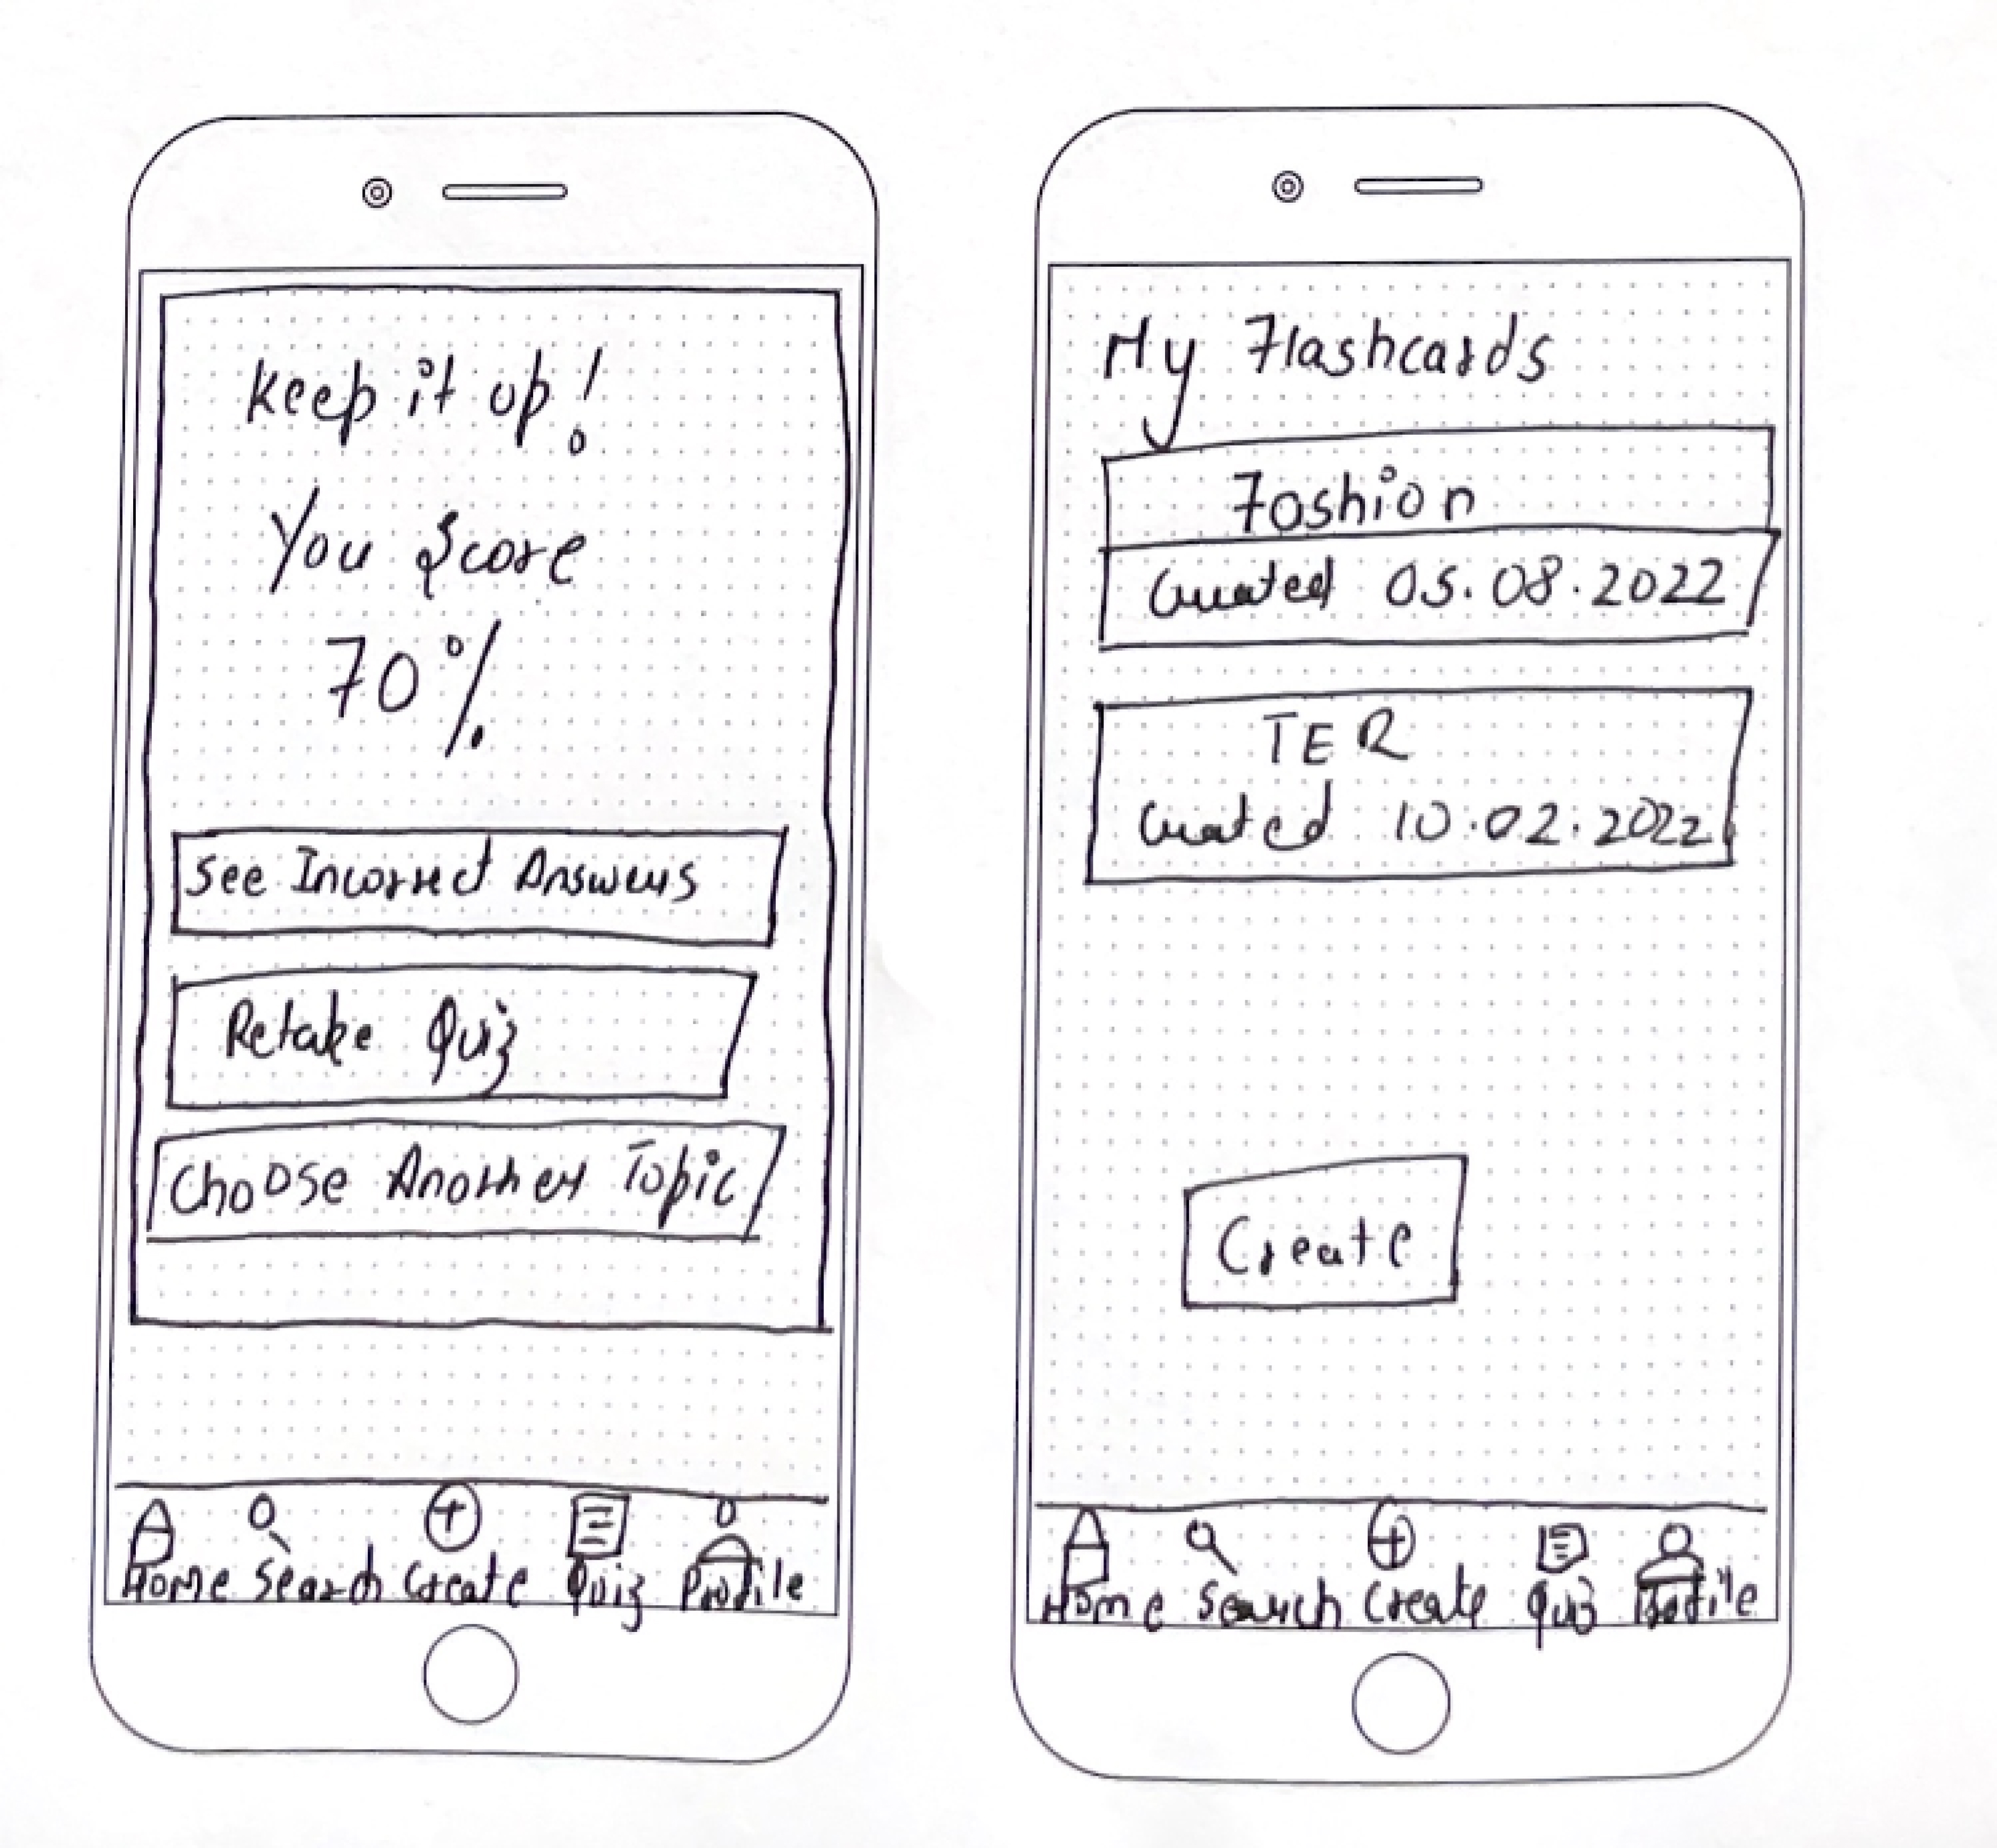 Keep it up!
You Score
70%
See Incorrect Answers
Retake Quiz
Choose Another Topic
Home Search Create Quiz Profile
My Flashcards
Fashion
Created 05.08.2022
TER
Created 10.02.2022
Create
Home Search Create Quiz Profile